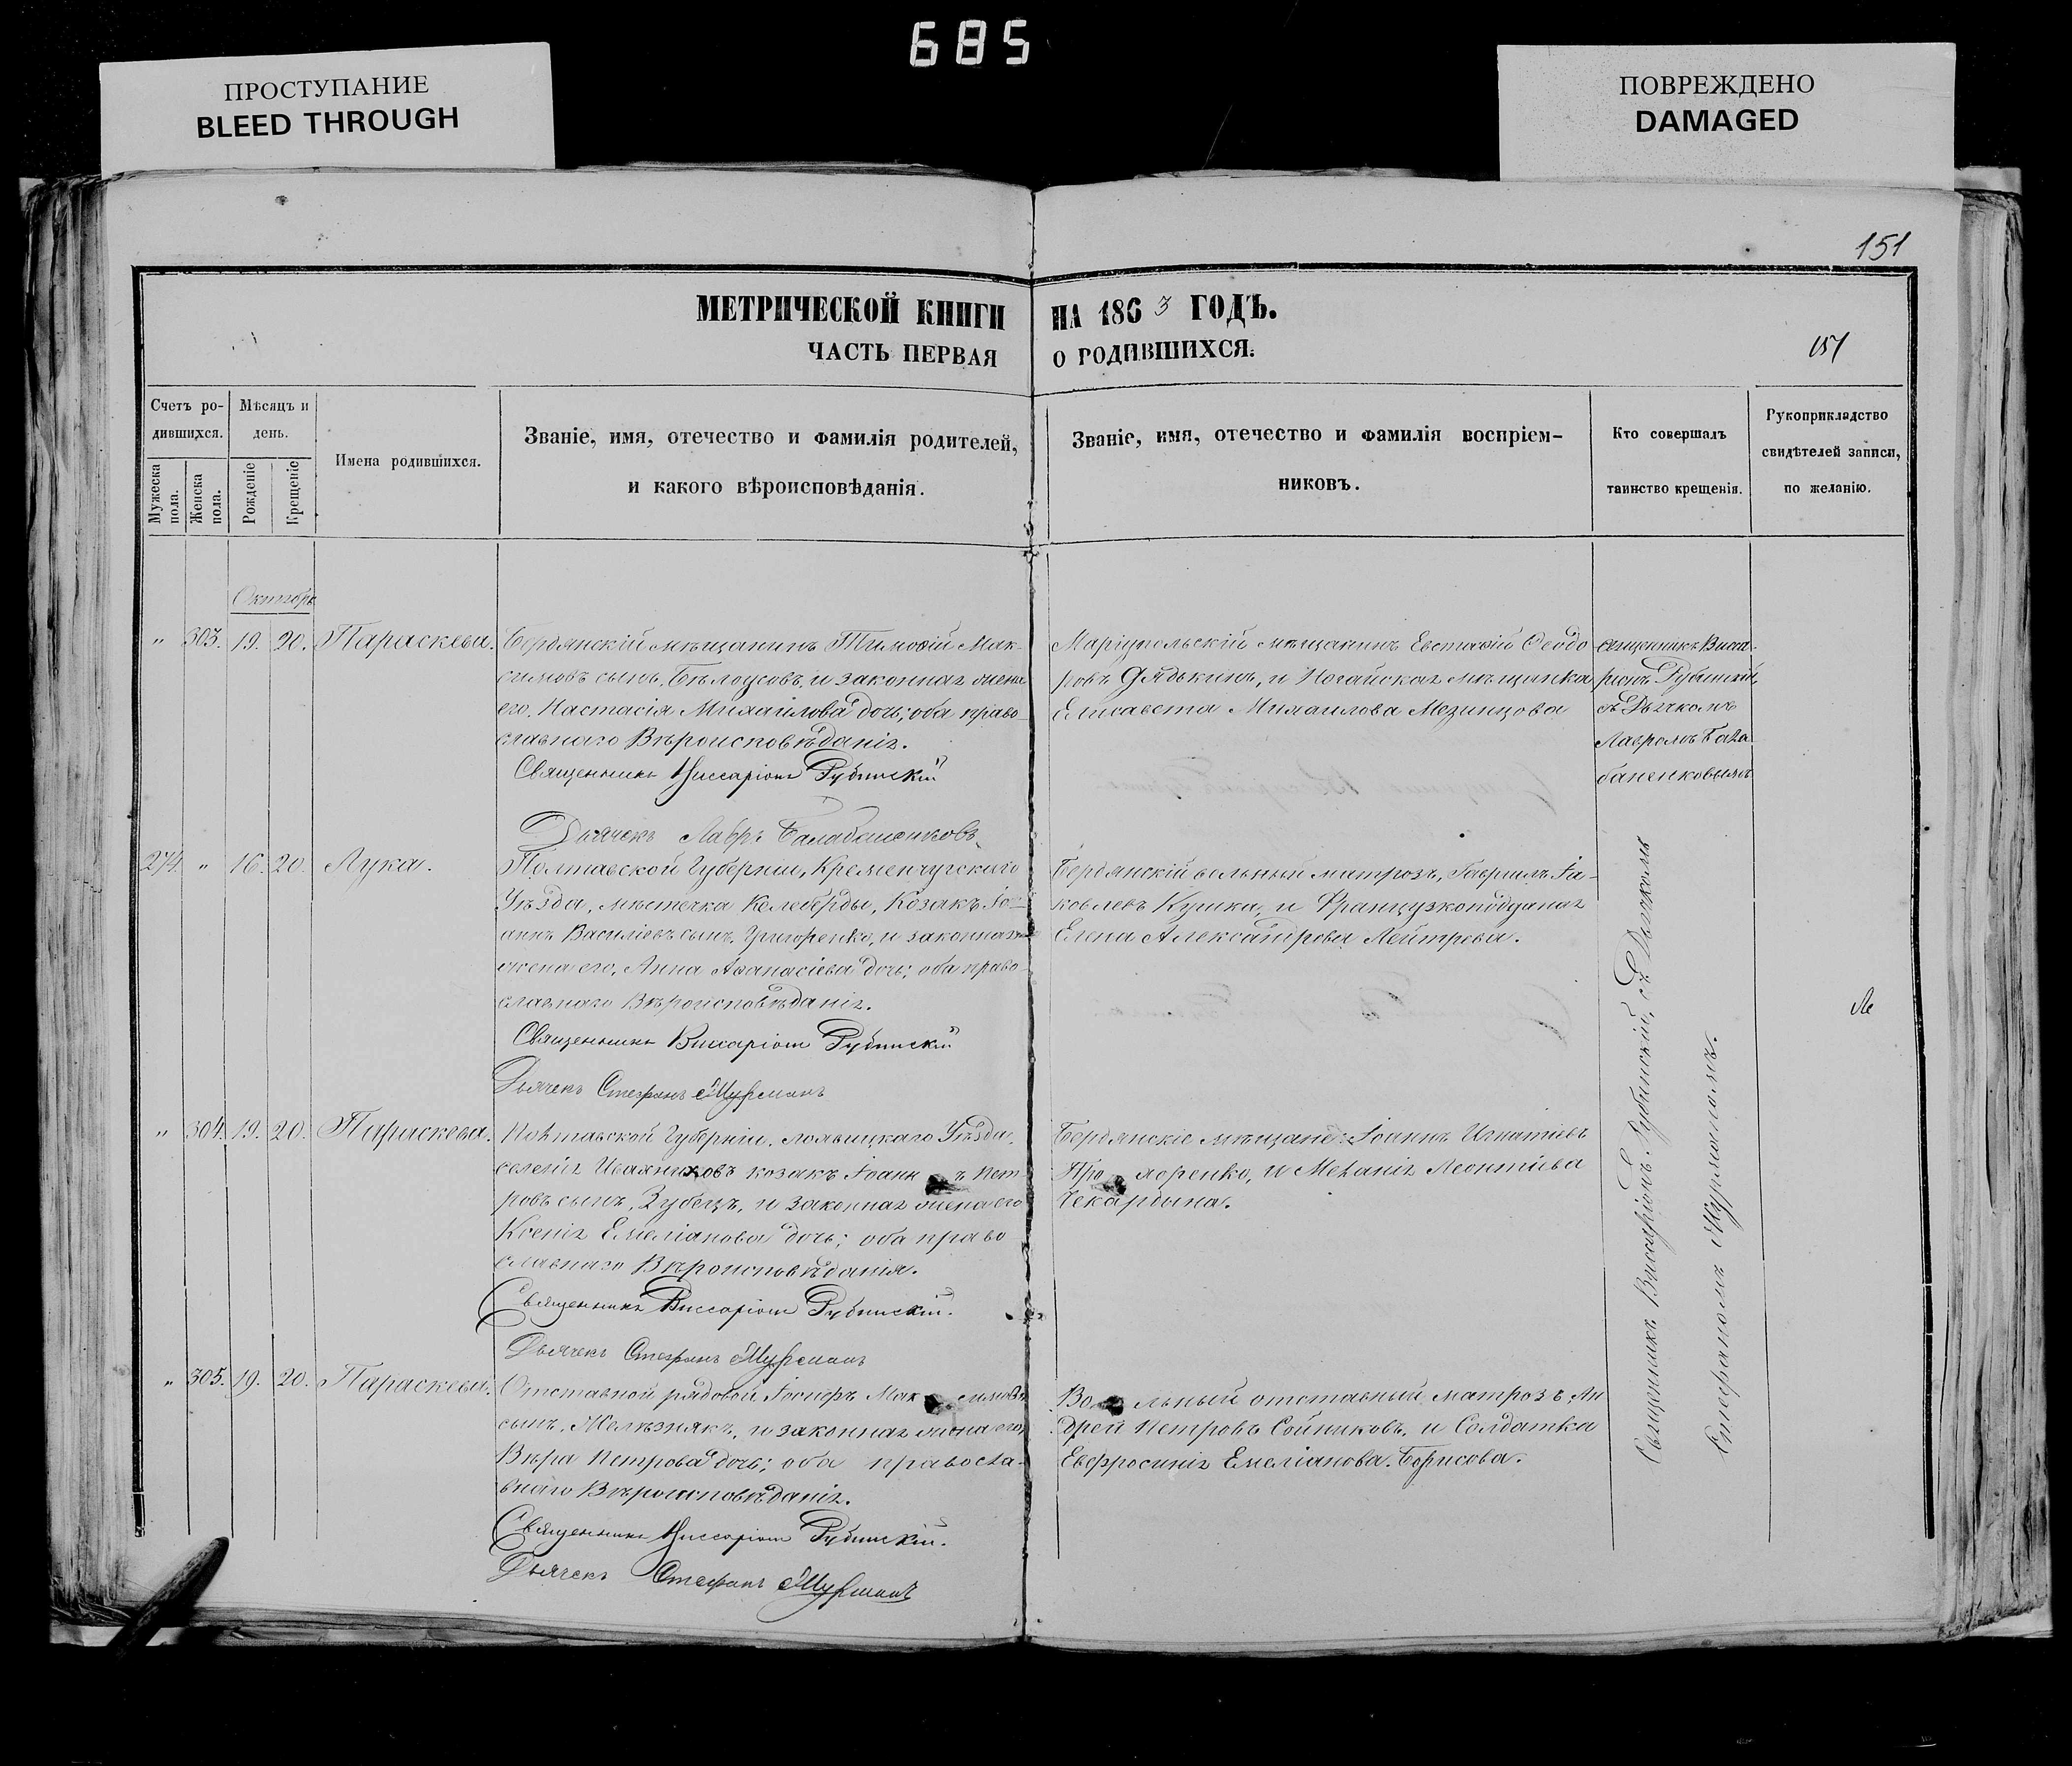 685
ПРОСТУПАНИЕ
BLEED THROUGH
ПОВРЕЖДЕНО
DAMAGED
151
МЕТРИЧЕСКОЙ КНИГИ НА 1863 ГОДЪ.
ЧАСТЬ ПЕРВАЯ О РОДИВШИХСЯ.
151
Счетъ ро-
дившихся.
Мужеска пола.
Женска пола.
Мѣсяцъ и
день.
Рожденіе
Крещеніе
Имена родившихся.
Званіе, имя, отечество и фамилія родителей,
и какого вѣроисповѣданія.
Званіе, имя, отечество и фамилія воспріем-
никовъ.
Кто совершалъ
таинство крещенія.
Рукоприкладство
свидѣтелей записи,
по желанію.
Октябрь
" 303. 19. 20. Параскева.
Бердянскій мѣщанинъ Тимофій Мак-
симовъ сынъ, Бѣлоусовъ, и законная жена
его, Настасія Михаилова дочь; оба право-
славнаго Вѣроисповѣданія.
Священникъ Виссаріонъ Рубинскій
Дьячекъ Лавръ Балабаненковъ
Маріупольскій мѣщанинъ Евстафій Феодо
ровъ Дядькинъ, и Ногайская мѣщанка
Елисавета Михаилова Мезинцова
священникъ Висса-
ріонъ Рубинскій,
съ Дьячкомъ
Лавромъ Бала
баненковымъ
274 " 16. 20. Лука.
Полтавской Губерніи, Кременчугскаго
Уѣзда, мѣстечка Келеберды, Козакъ Іо-
аннъ Василіевъ сынъ, Григоренко, и законная
жена его, Анна Аѳанасіева дочь; оба право-
славнаго Вѣроисповѣданія.
Священникъ Виссаріонъ Рубинскій
Дьячекъ Стефанъ Мурманъ
Бердянскій вольный матрозъ, Гавріилъ Іа-
ковлевъ Кушка, и Французкоподданая
Елена Александрова Лейтрева.
" 304. 19. 20. Параскева.
Полтавской Губерніи, Лохвицкаго Уѣзда,
селенія Иваяниковъ козакъ Іоаннъ Пет
ровъ сынъ, Зубецъ, и законная жена его
Ксенія Емеліанова дочь; оба право
славнаго Вѣроисповѣданія.
Священникъ Виссаріонъ Рубинскій.
Дьячекъ Стефанъ Мурманъ
Бердянскіе мѣщане: Іоаннъ Игнатіевъ
Про яоренко, и Меланія Леонтіева
Чекардина.
" 305. 19. 20. Параскева.
Отставной рядовой Іосифъ Максимовъ
сынъ, Желѣзнякъ, и законная жена его,
Вѣра Петрова дочь; оба правосла-
внаго Вѣроисповѣданія.
Священникъ Виссаріонъ Рубинскій.
Дьячекъ Стефанъ Мурманъ
Вольный отставный матрозъ Ан
дрей Петровъ Сойниковъ, и Солдатка
Евфросинія Емеліанова Борисова.
Священникъ Виссаріонъ Рубинскій, съ Дьячкомъ
Стефаномъ Мурманомъ.